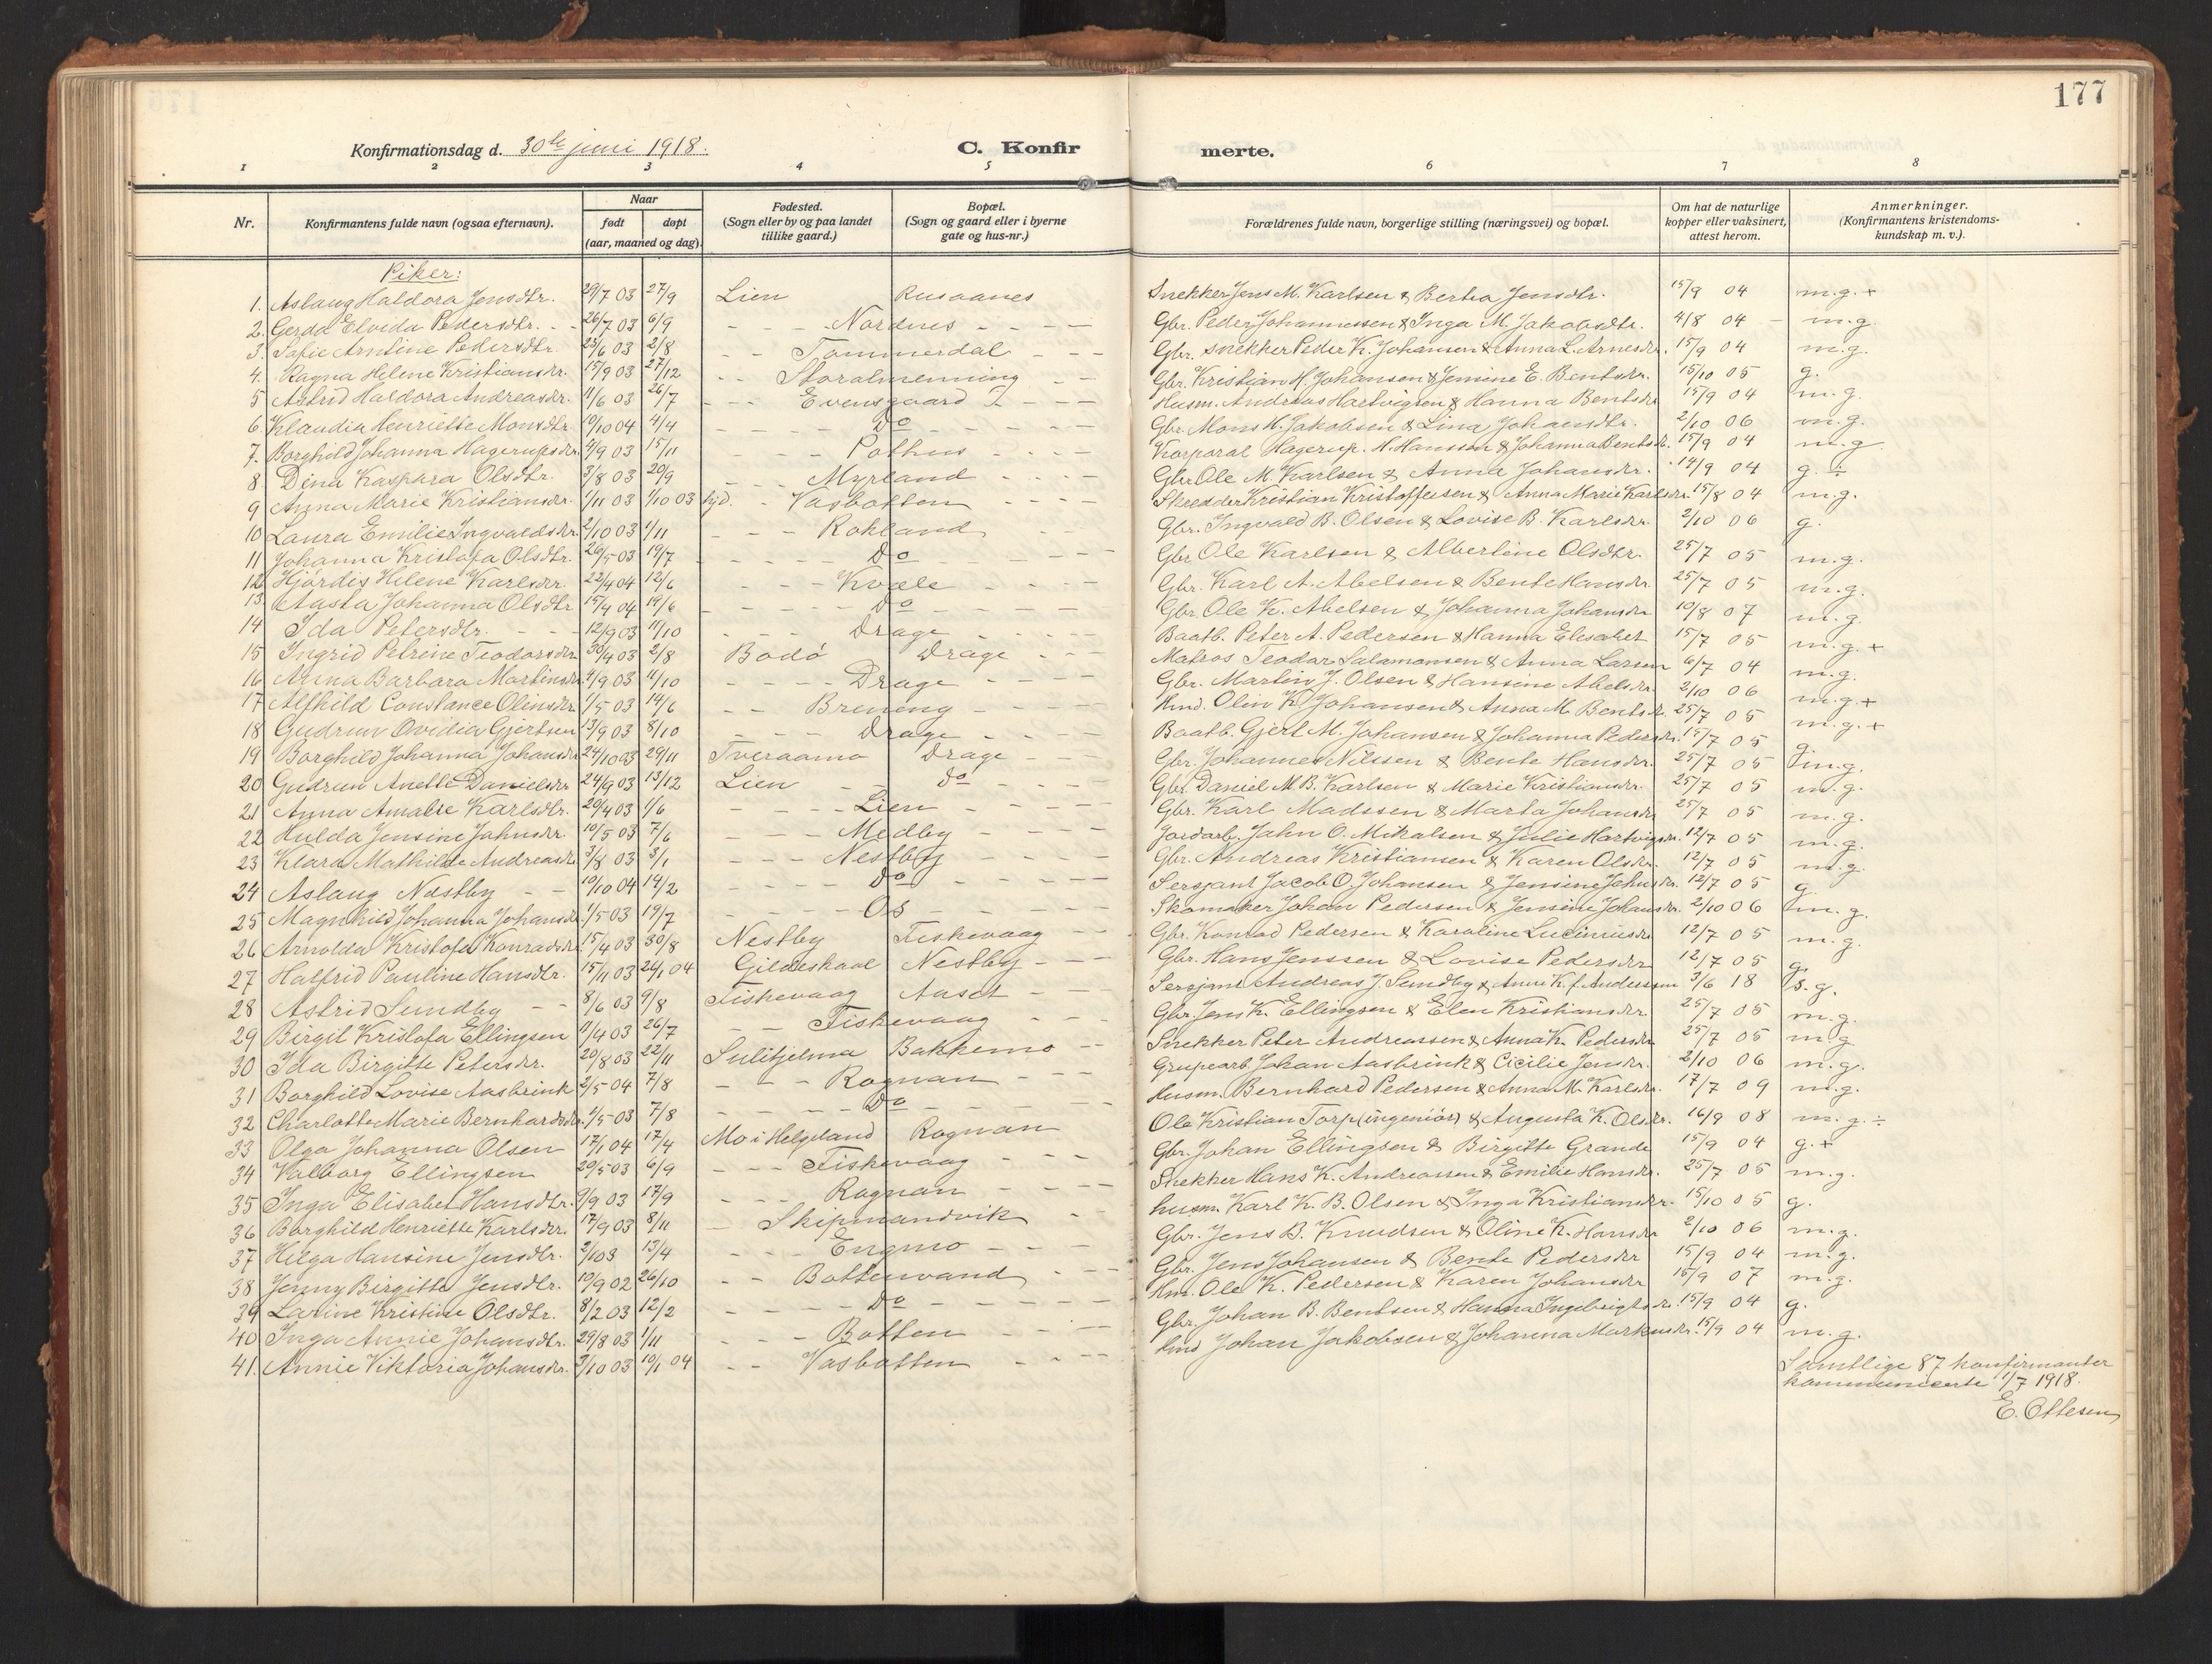 177
Konfirmationsdag d. 30te juni 1918. C. Konfir merte.
1 2 3 4 5 6 7 8
Nr. Konfirmantens fulde navn (ogsaa efternavn). Naar født døpt (aar, maaned og dag). Fødested. (Sogn eller by og paa landet tillike gaard.) Bopæl. (Sogn og gaard eller i byerne gate og hus-nr.) Forældrenes fulde navn, borgerlige stilling (næringsvei) og bopæl. Om hat de naturlige kopper eller vaksinert, attest herom. Anmerkninger. (Konfirmantens kristendoms-kundskap m. v.).
Piker:
1. Aslaug Haldora Jensdtr. 29/7 03 27/9 Lien Rusaanes Snekker Jens M. Karlsen & Berha Jensdtr. 15/9 04 m.g.+
2. Gerda Elvida Pedersdtr. - - 26/7 03 6/9 - - - Nordnes - - - - Gbr. Peder Johannessen & Inga M. Jakobsdtr. 4/8 04 - m.g.
3. Sofie Arntine Pedersdtr. 23/6 03 2/8 - - Tømmerdal - - - Gbr. snekker Peder K. Johansen & Anna L. Arnesdr. 15/9 04 m.g.
4. Ragna Helene Kristiansdr. 15/9 03 27/12 - - Storalmenning - - Gbr. Kristian H. Johansen & Jensine E. Bentsdr. 15/10 05 g.
5 Astrid Haldora Andreasdr. 11/6 03 26/7 - - - Evensgaard I - - - Husm. Andreas Hartvigsen & Hanna Bentsdr 15/9 04 m.g.
6. Klaudia Henriette Monsdtr. 10/10 04 4/4 - - - - Do - - - - Gbr. Mons H. Jakobsen & Lina Johansdtr. 2/10 06 m.g.
7. Borghild Johanna Hagerupsdr. 4/9 03 15/11 - - - Pothus - - - - Korporal Hagerup. H. Hansson & Johanna Bentsdr. 15/9 04 m.g
8 Dina Kaspara Olsdtr. 3/8 03 20/9 - - - Myrland - - - - Gbr Ole M. Karlsen & Anna Johansdr. 14/9 04 g. ÷
9 Anna Marie Kristiansdr. 1/11 03 1/10 03 hjd. - Vasbotten - - - Skredder Kristian Kristoffersen & Anna Marie Karlsdr. 15/8 04 m.g.
10 Laura Emilie Ingvaldsdr. 2/10 03 1/11 - - - Rokland - - Gbr. Ingvald B. Olsen & Lovise B. Karlsdr. 2/10 06 g.
11 Johanna Kristofa Olsdtr. 20/5 03 19/7 - - - - Do - - - Gbr Ole Karlsen & Albertine Olsdtr. 25/7 05 m.g.
12 Hjördis Helene Karlsdr. 22/4 04 12/6 - - - - Kvæle - - - - Gbr. Karl A. Abelsen & Bente Hansdr. 25/7 05 m.g.
13 Aasta Johanna Olsdtr 15/4 04 19/6 - - - - Do - - - - Gbr. Ole K. Abelsen & Johanna Johansdr 10/8 07 m.g.
14 Ida Petersdtr. - - - 12/9 03 11/10 - - - Drage - - - - Baatb. Peter A. Pedersen & Hanna Elesabet 15/7 05 m.g.+
15 Ingrid Petrine Teodorsdr. 30/4 03 2/8 Bodö Drage - - - Matros Teodor Salamonsen & Anna Larsen 6/7 04 m.g.
16 Anna Barbara Martinsdr. 4/9 03 11/10 - - - - Drage - - - - Gbr. Martin J. Olsen & Hansine Abelsdr. 2/10 06 m.g.+
17 Alfhild Constance Olinsdr 1/5 03 14/6 - - Brenäng - - - Hmd. Olin K. Johansen & Anna M. Bentsdr. 25/7 05 m.g.+
18 Gudrun Ovidia Gjertsen 13/9 03 8/10 - - - - Drage - - - - Baatb. Gjert M. Johansen & Johanna Pedersdr. 15/7 05 g.
19 Borghild Johanna Johansdr 24/10 03 29/11 Tveraamo Drage - - - Gbr. Johannes Nilssen & Bente Hansdr. 25/7 05 m.g.
20 Gudrun Anette Danielsdr 24/9 03 13/12 Lien - - Do - - - Gbr. Daniel M.B. Karlsen & Marie Kristiansdr. 25/7 05 m.g.
21 Anna Amalie Karlsdtr. 20/4 03 1/6 - - - - Lien - - - - Gbr. Karl Madssen & Marta Johansdr 25/7 05 m.g.
22 Hulda Jensine Jahnsdr. 10/5 03 7/6 - - - Medby - - - - Jordarb. Jahn O. Mikalsen & Julie Hartvigsdr. 12/7 05 m.g.
23 Klara Mathilde Andreasdr 3/8 03 3/1 - - - Nestby - - - - Gbr. Andreas Kristiansen & Karen Olsdr. 12/7 05 m.g.
24 Aslaug Nestby - - 10/10 04 14/2 - - - - Do - - - - Sersjant Jacob O. Johansen & Jensine Jahnsdr. 12/7 05 g.
25 Magnhild Johanna Johansdr. 1/5 03 19/7 - - - - Os - - - - Skomaker Johan Pedersen & Jensine Johansdr. 2/10 06 m.g.
26 Arnolda Kristofa Konradsdr. 15/4 03 30/8 Nestby Fiskevaag - - Gbr. Konrad Pedersen & Karoline Luciniusdr 12/7 05 m.g.
27 Halfrid Pauline Hansdtr. 15/11 03 24/1 04 Gildeskaal Nestby - - - Gbr. Hans Jenssen & Lovise Pedersdr 12/7 05 g.
28 Astrid Sundby - - 8/6 03 9/8 Fiskevaag Aaset - - - Sersjant Andreas J. Sundby & Anne K. f. Anderssen 3/6 18 s.g.
29 Birgit Kristofa Ellingsen 11/4 03 26/7 - - Fiskevaag - - - Gbr. Jens K. Ellingsen & Elen Kristiansdr. 25/7 05 m.g.
30 Ida Birgitte Petersdr. 20/8 03 22/11 Sulitjelma Bakkemo - - Snekker Peter Andreassen & Anna K. Pedersdr 25/7 05 m g
31 Borghild Lovise Aasbrink 2/5 04 7/8 - - - Rognan - - - Grupearb. Johan Aasbrink & Cicilie Jensdr. 2/10 06 m.g.
32 Charlotte Marie Bernhardsdr. 1/5 03 7/8 - - - - Do - - - - Husm. Bernhard Pedersen & Anna M. Karlsdr. 17/7 09 m.g.
33 Olga Johanna Olsen 17/1 04 17/4 Mo i Helgeland Rognan Ole Kristian Torp (ingeniør) & Augusta K. Olsdr. 16/9 08 m.g.÷
34 Valborg Ellingsen 20/5 03 6/9 - - - Fiskevaag - - - Gbr. Johan Ellingsen & Birgitte Grande 15/9 04 g.+
35 Inga Elisabet Hansdtr. 9/9 03 17/9 - - - Rognan - - - Snekker Hans K. Andreassen & Emilie Hansdr. 25/7 05 m.g.
36 Borghild Henriette Karlsdr. 17/9 03 8/11 - Skipmandvik - - husm. Karl K. B. Olsen & Inga Kristiansdr. 15/10 05 g.
37 Helga Hansine Jensdtr. 2/1 03 13/4 - - - Engmo - - - Gbr. Jens B. Knudsen & Oline K. Hansdr 2/10 06 m.g.
38 Jenny Birgitte Jensdtr. 10/9 02 26/10 - - Bottenvand - - Gbr. Jens Johansen & Bente Pedersdr 15/9 04 m.g.
39 Larine Kristine Olsdtr. 8/2 03 12/2 - - - - Do - - - - Hm. Ole K. Pedersen & Karen Johansdr 15/9 07 m.g.
40 Inga Annie Johansdtr. 29/8 03 1/11 - - - Botten - - - Gbr. Johan B. Bentsen & Hanna Ingebrigtsdr. 15/9 04 g.
41. Annie Viktoria Johansdr. 3/10 03 10/1 04 - - Vasbotten - - - Hmd Johan Jakobsen & Johanna Markusdr. 15/9 04 m.g.
Samtlige 87 konfirmanter
kommunicerte 11/7 1918.
E. Ottesen